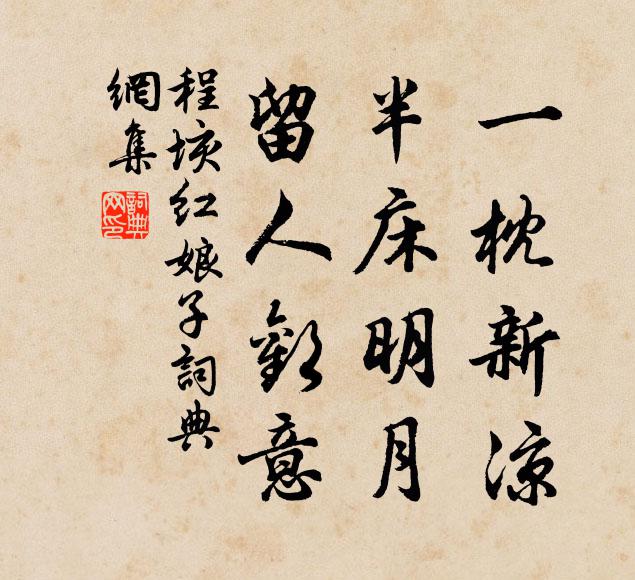 一枕新涼
半床明月
留人歡意
程垓紅娘子詞典
網集
詞典
网印